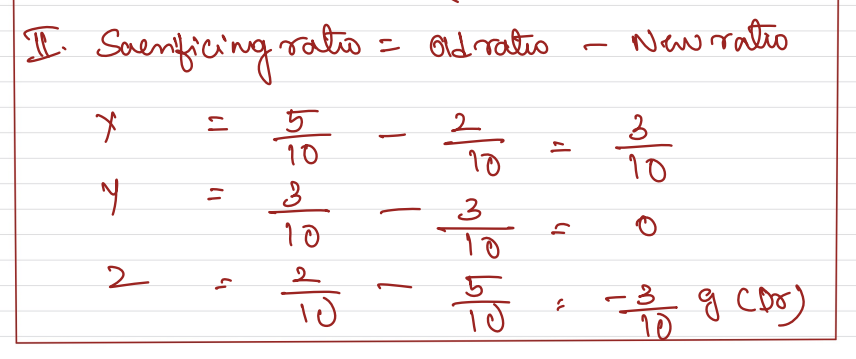 II. Sacrificing ratio = old ratio - New ratio
X = 5/10 - 2/10 = 3/10
Y = 3/10 - 3/10 = 0
Z = 2/10 - 5/10 = -3/10 g (Dr)